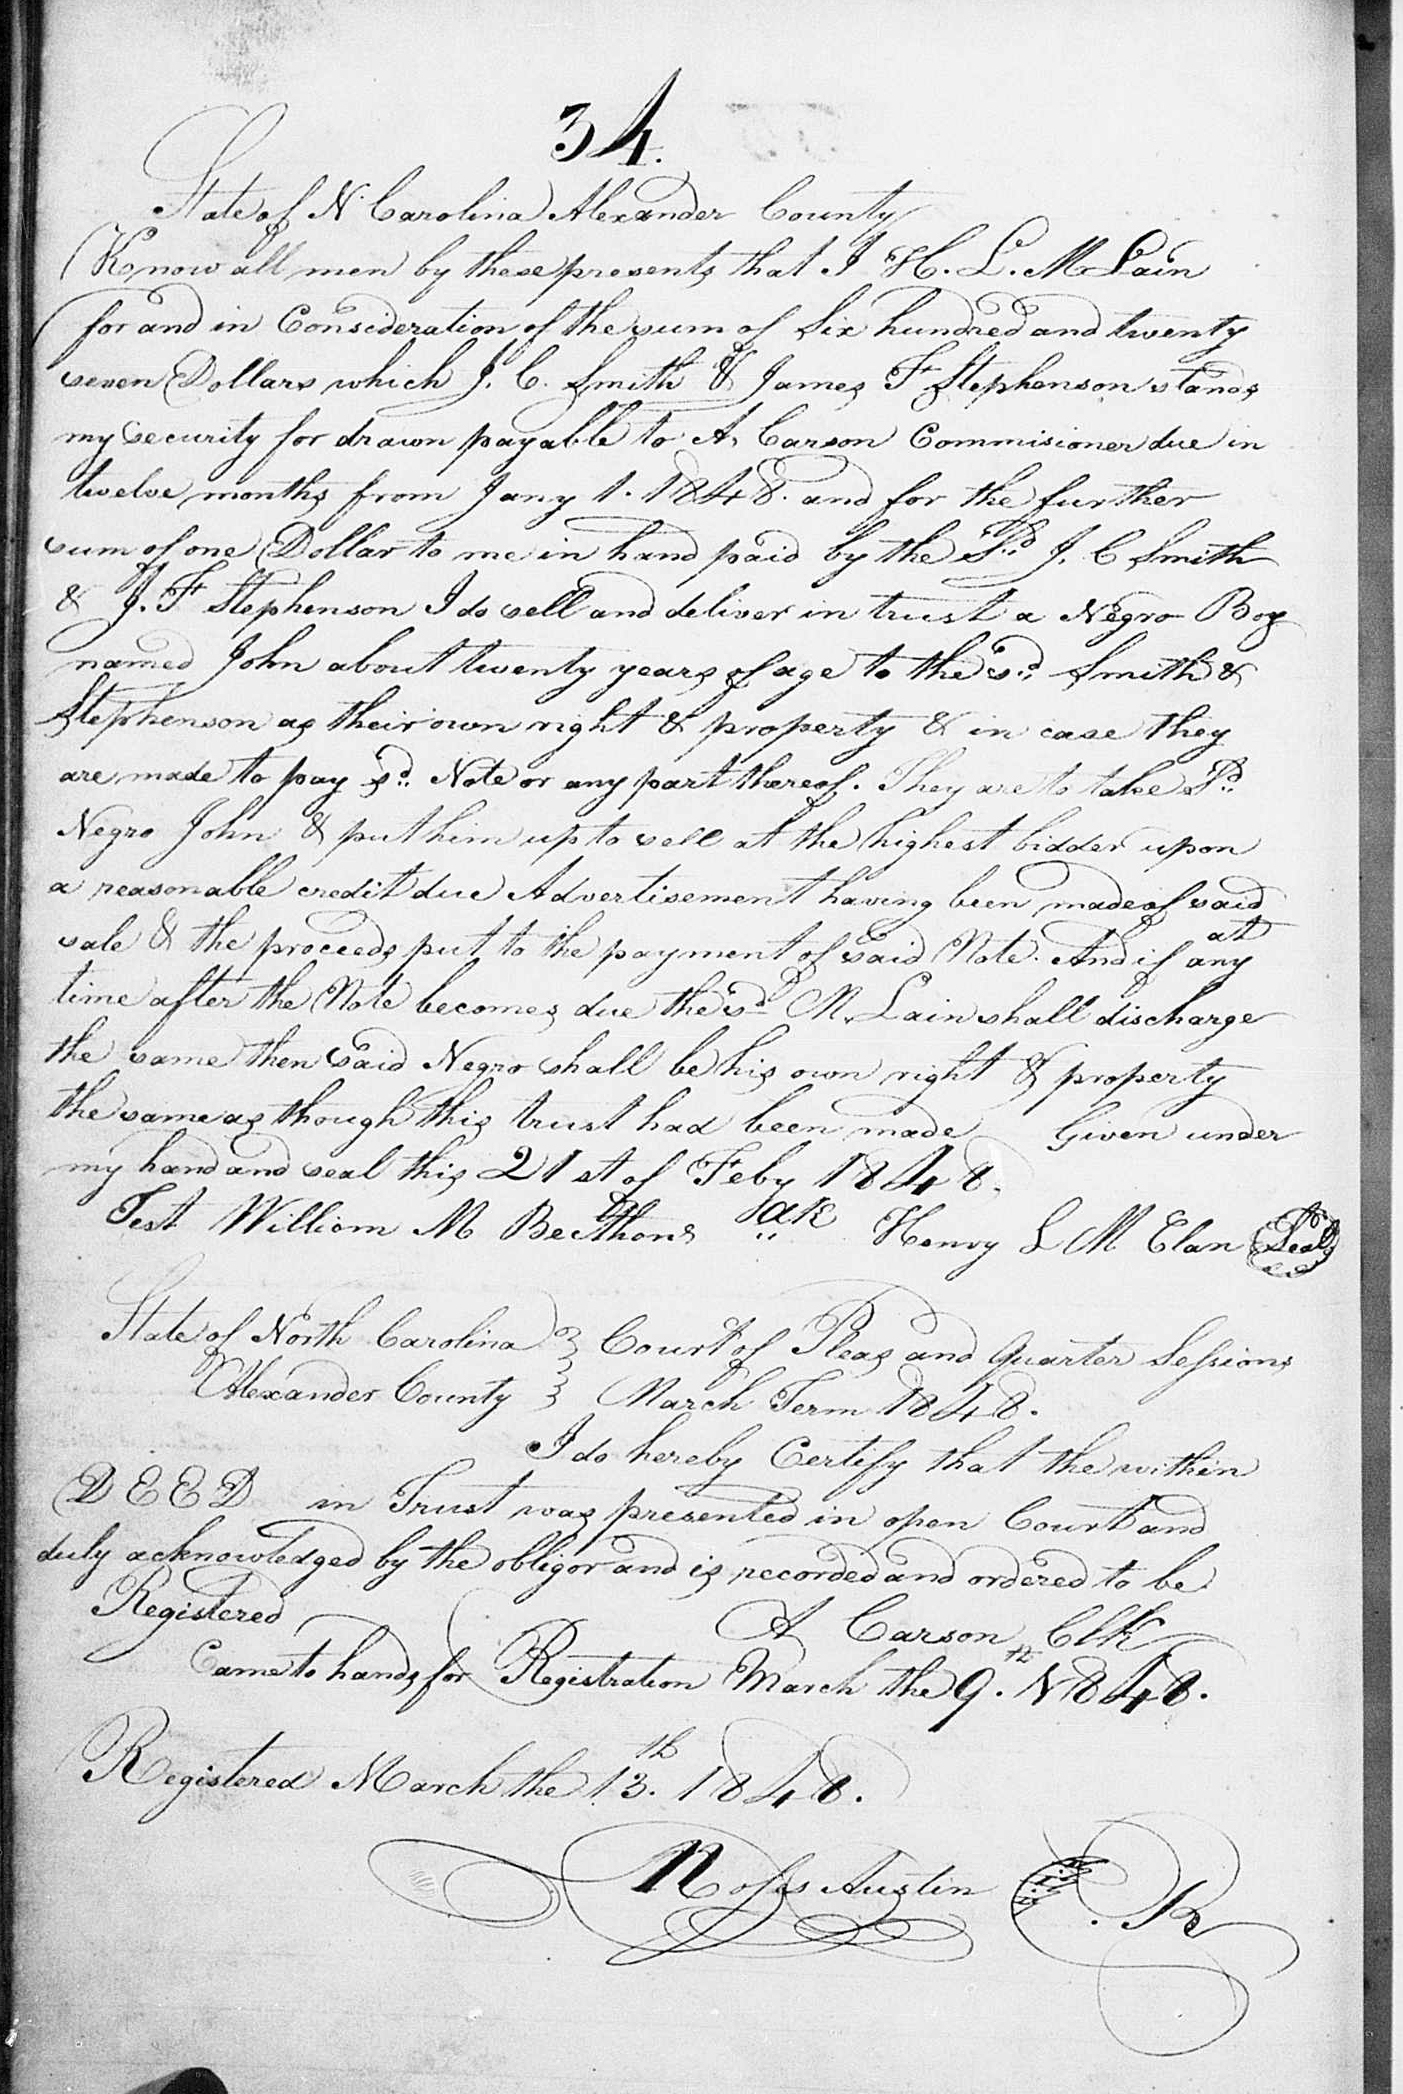 34.
State of N. Carolina Alexander County
Know all men by these presents that I H. L. McLain
for and in Consideration of the sum of Six hundred and twenty
seven Dollars which J. C. Smith & James F Stephenson stands
my security for drawn payable to A. Carson Commisioner due in
twelve months from Jany 1. 1848. and for the further
sum of one Dollar to me in hand paid by the Sd. J. C Smith
& J. F Stephenson I do sell and deliver in trust a Negro Boy
named John about twenty years of age to the sd. Smith &
Stephenson as their own right & property & in case they
are made to pay sd. Note or any part thereof. They are to take Sd.
Negro John & put him up to sell at the highest bidder upon
a reasonable credit due Advertisement having been made of said
sale & the proceeds put to the payment of said Note. And if at any
time after the Note becomes due the sd. McLain shall discharge
the same then said Negro shall be his own right & property
the same as though this trust had been made Given under
my hand and seal this 21st of Feby 1848.
Test William M Henry L M Elan Seal
State of North Carolina } Court of Pleas and Quarter Sessions
Alexander County } March Term 1848.
I do hereby Certify that the within
DEED in Trust was presented in open Court and
duly acknowledged by the obligor and is recorded and ordered to be
Registered A Carson Clk
Came to hands for Registration March the 9th. 1848.
Registered March the 13th. 1848.
Moses Austin P. R